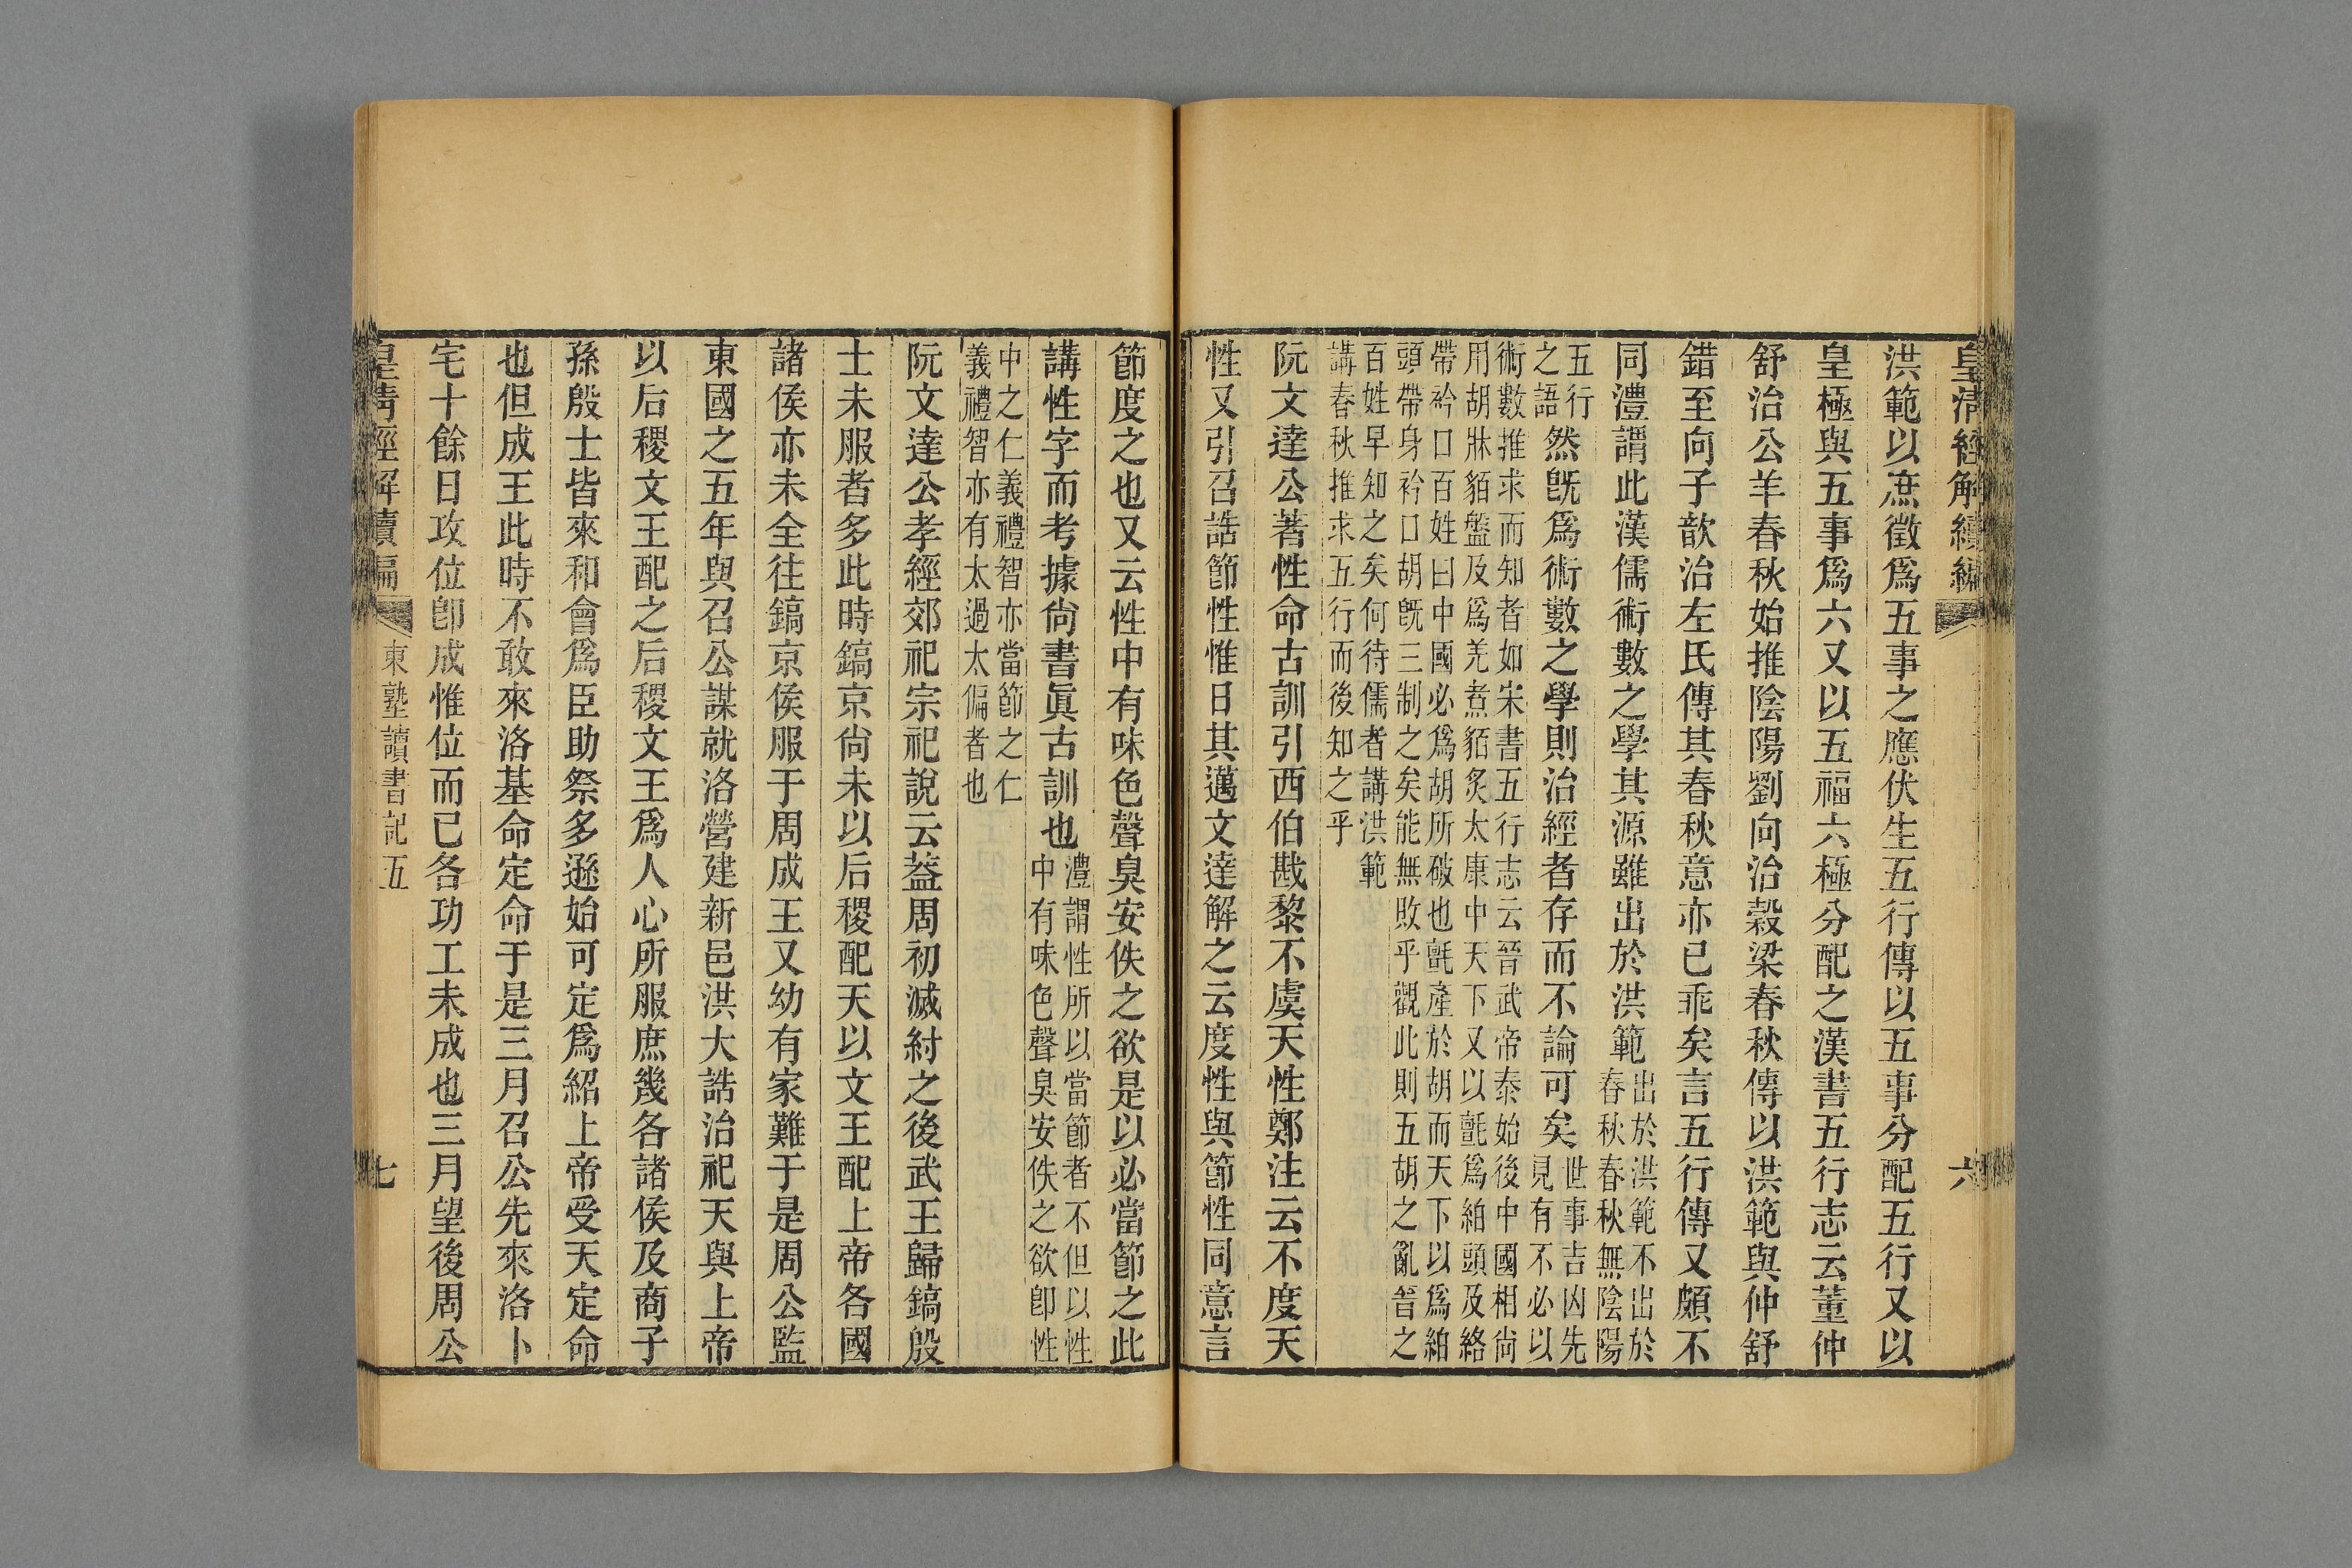 皇清經解續編
六
洪範以庶徵爲五事之應伏生五行傳以五事分配五行又以
皇極與五事爲六又以五福六極分配之漢書五行志云董仲
舒治公羊春秋始推陰陽劉向治穀梁春秋傳以洪範與仲舒
錯至向子歆治左氏傳其春秋意亦已乖矣言五行傳又頗不
同澧謂此漢儒術數之學其源雖出於洪範出於洪範不出於
春秋春秋無陰陽
五行
之語然旣爲術數之學則治經者存而不論可矣世事吉凶先
見有不必以
術數推求而知者如宋書五行志云晉武帝泰始後中國相尙
用胡牀貊盤及爲羌煮貊炙太康中天下又以氈爲絈頭及絡
帶衿口百姓曰中國必爲胡所破也氈產於胡而天下以爲絈
頭帶身衿口胡旣三制之矣能無敗乎觀此則五胡之亂晉之
百姓早知之矣何待儒者講洪範
講春秋推求五行而後知之乎
阮文達公著性命古訓引西伯戡黎不虞天性鄭注云不度天
性又引召誥節性惟日其邁文達解之云度性與節性同意言
節度之也又云性中有味色聲臭安佚之欲是以必當節之此
講性字而考據尙書眞古訓也澧謂性所以當節者不但以性
中有味色聲臭安佚之欲卽性
中之仁義禮智亦當節之仁
義禮智亦有太過太偏者也
阮文達公孝經郊祀宗祀說云葢周初滅紂之後武王歸鎬殷
士未服者多此時鎬京尙未以后稷配天以文王配上帝各國
諸侯亦未全往鎬京侯服于周成王又幼有家難于是周公監
東國之五年與召公謀就洛營建新邑洪大誥治祀天與上帝
以后稷文王配之后稷文王爲人心所服庶幾各諸侯及商子
孫殷士皆來和會爲臣助祭多遜始可定爲紹上帝受天定命
也但成王此時不敢來洛基命定命于是三月召公先來洛卜
宅十餘日攻位卽成惟位而已各功工未成也三月望後周公
皇清經解續編
東塾讀書記五
七